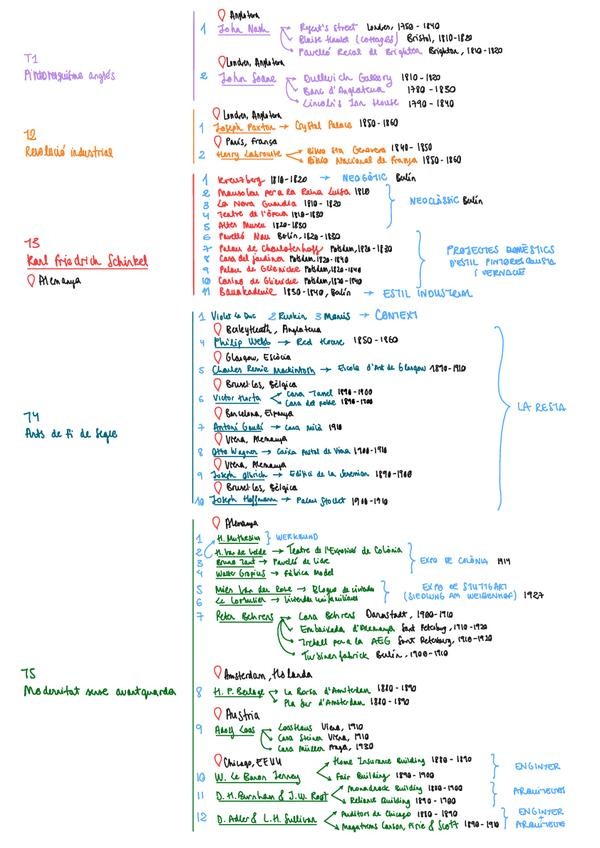 T1
Pintoresquisme anglès
Anglaterra
1 John Nash
Regent's Street Londres, 1750 - 1840
Blaise Hamlet (cottages) Bristol, 1810-1820
Pavelló Reial de Brighton Brighton, 1810-1820
Londres, Anglaterra
2 John Soane
Dullwich Gallery 1810-1820
Banc d'Anglaterra 1780-1830
Lincoln's Inn House 1790-1840
T2
Revolució industrial
Londres, Anglaterra
1 Joseph Paxton → Crystal Palace 1850-1860
París, França
2 Henry Labrouste
Biblio Sta Genoveva 1840-1850
Biblio Nacional de França 1850-1860
T3
Karl Friedrich Schinkel
Alemanya
1 Kreuzberg 1810-1820 → NEOGÒTIC Berlín
2 Mausoleu per a la Reina Luisa 1810
3 La Nova Guardia 1810-1820
4 Teatre de l'Òpera 1810-1830
5 Altes Museu 1820-1830
NEOCLÀSSIC Berlín
6 Pavelló Nou Berlín, 1820-1830
7 Palau de Charlottenhoff Potsdam, 1820-1830
8 Casa del jardiner Potsdam, 1820-1840
9 Palau de Glienicke Potsdam, 1820-1840
10 Casino de Glienicke Potsdam, 1820-1840
PROJECTES DOMÈSTICS
D'ESTIL PINTORESQUISTA
I VERNACLE
11 Bauakademie 1830-1840, Berlín → ESTIL INDUSTRIAL
T4
Arts de fi de segle
1 Violet le Duc 2 Ruskin 3 Morris → CONTEXT
Bexleyheath, Anglaterra
4 Philip Webb → Red House 1850-1860
Glasgow, Escòcia
5 Charles Rennie Mackintosh → Escola d'Art de Glasgow 1890-1910
Brusel·les, Bèlgica
6 Victor Horta
Casa Tassel 1890-1900
Casa del poble 1890-1900
Barcelona, Espanya
7 Antoni Gaudí → Casa Milà 1910
Viena, Alemanya
8 Otto Wagner → Caixa Postal de Viena 1900-1910
Viena, Alemanya
9 Joseph Olbrich → Edifici de la Secession 1890-1900
Brusel·les, Bèlgica
10 Joseph Hoffmann → Palau Stoclet 1900-1910
LA RESTA
T5
Modernitat sense avantguarda
Alemanya
1 H. Muthesius } WERKBUND
2 H. Van de Velde → Teatre de l'Exposició de Colònia
3 Bruno Taut → Pavelló de Vidre
4 Walter Gropius → Fàbrica Model
EXPO DE COLÒNIA 1914
5 Mies Van der Rohe → Bloque de vivendes
6 Le Corbusier → Vivendes unifamiliars
EXPO DE STUTTGART
(SIEDLUNG AM WEIßENHOF) 1927
7 Peter Behrens
Casa Behrens Darmstadt, 1900-1910
Embaixada d'Alemanya Sant Petersburg, 1910-1920
Treball per a la AEG Sant Petersburg, 1910-1920
Turbinenfabrick Berlín, 1900-1910
Amsterdam, Holanda
8 H. P. Berlage
La Borsa d'Amsterdam 1880-1890
Pla Sur d'Amsterdam 1880-1890
Austria
9 Adolf Loos
Looshaus Viena, 1910
Casa Steiner Viena, 1910
Casa Müller Praga, 1930
Chicago, EEUU
10 W. Le Baron Jenney
Home Insurance Building 1880-1890
Fair Building 1890-1900
ENGINYER
11 D. H. Burnham & J. W. Root
Monadnock Building 1880-1900
Reliance Building 1890-1900
ARQUITECTES
12 D. Adler & L. H. Sullivan
Auditori de Chicago 1880-1890
Magatzems Carson, Pirie & Scott 1890-1910
ENGINYER
+
ARQUITECTES